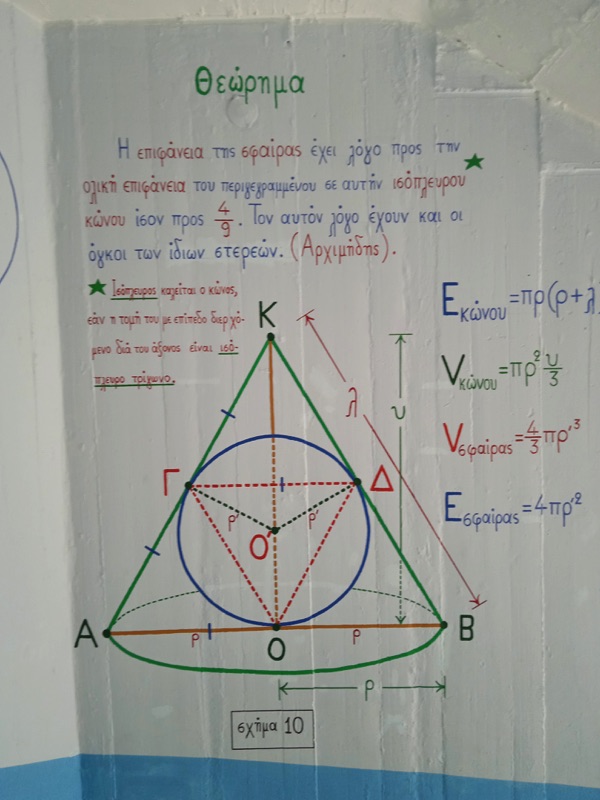 Θεώρημα
Η επιφάνεια της σφαίρας έχει λόγο προς την
ολική επιφάνεια του περιγεγραμμένου σε αυτήν ισόπλευρου
κώνου ίσον προς 4/9. Τον αυτόν λόγο έχουν και οι
όγκοι των ίδιων στερεών. (Αρχιμήδης).
★ Ισόπλευρος καλείται ο κώνος,
εάν η τομή του με επίπεδο διερχό-
μενο διά του άξονος είναι ισό-
πλευρο τρίγωνο.
E κώνου = πρ(ρ+λ)
V κώνου = πρ² υ/3
V σφαίρας = 4/3 πρ'³
E σφαίρας = 4πρ'²
K
λ
υ
Γ
Δ
ρ'
ρ'
O'
A
ρ
O
ρ
B
ρ
σχήμα 10